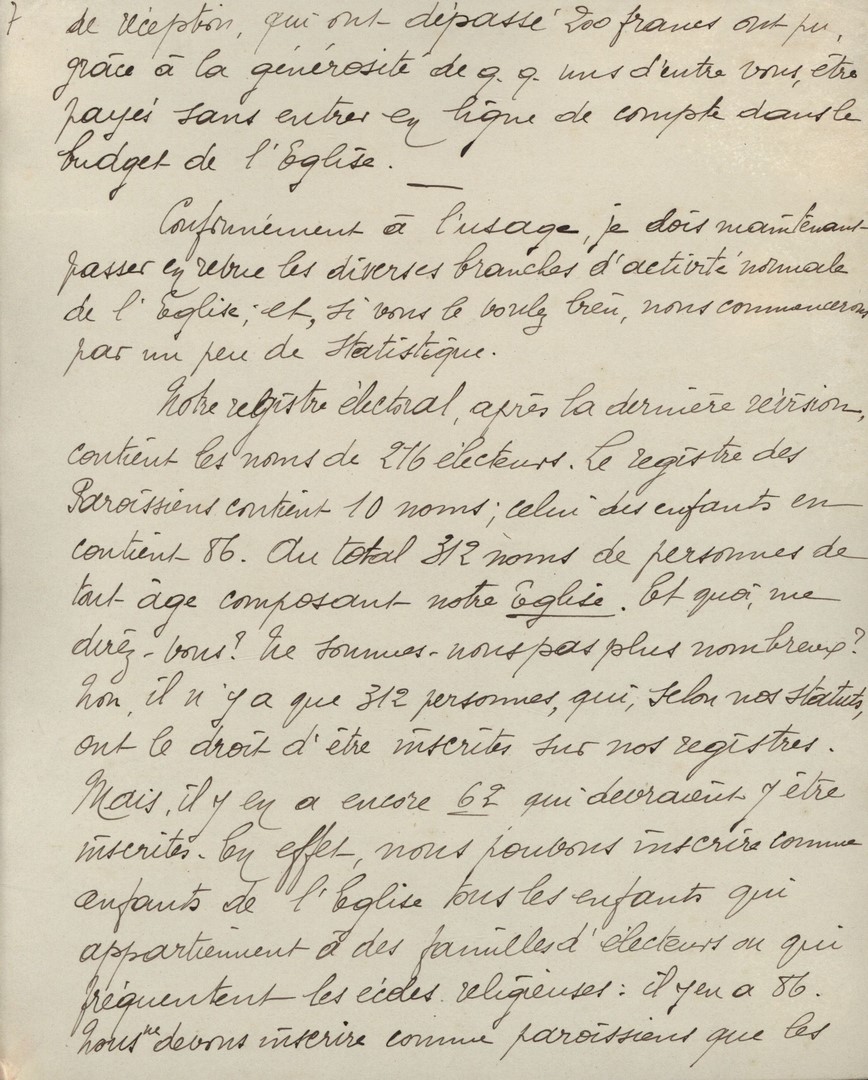 7 de réception, qui ont dépassé 200 francs ont pu,
grâce à la générosité de q. q. uns d'entre vous, être
payés sans entrer en ligne de compte dans le
budget de l'Eglise.
Conformément à l'usage, je dois maintenant
passer en revue les diverses branches d'activité normale
de l'Eglise; et, si vous le voulez bien, nous commencerons
par un peu de statistique.
Notre registre électoral, après la dernière révision,
contient les noms de 216 électeurs. Le registre des
Paroissiens contient 10 noms; celui des enfants en
contient 86. Au total 312 noms de personnes de
tout âge composant notre Eglise. Et quoi, me
direz-vous? Ne sommes-nous pas plus nombreux?
Non, il n'y a que 312 personnes, qui, selon nos statuts,
ont le droit d'être inscrites sur nos registres.
Mais, il y en a encore 62 qui devraient y être
inscrites. En effet, nous pouvons inscrire comme
enfants de l'Eglise tous les enfants qui
appartiennent à des familles d'électeurs ou qui
fréquentent les écoles religieuses: il y en a 86.
Nous ne devons inscrire comme paroissiens que les